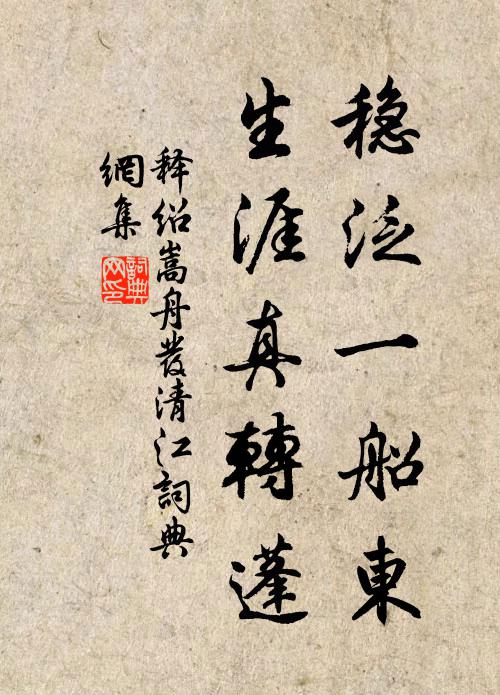 稳泛一船東
生涯真轉蓬
释绍嵩舟發清江詞典
網集
詞典
网印